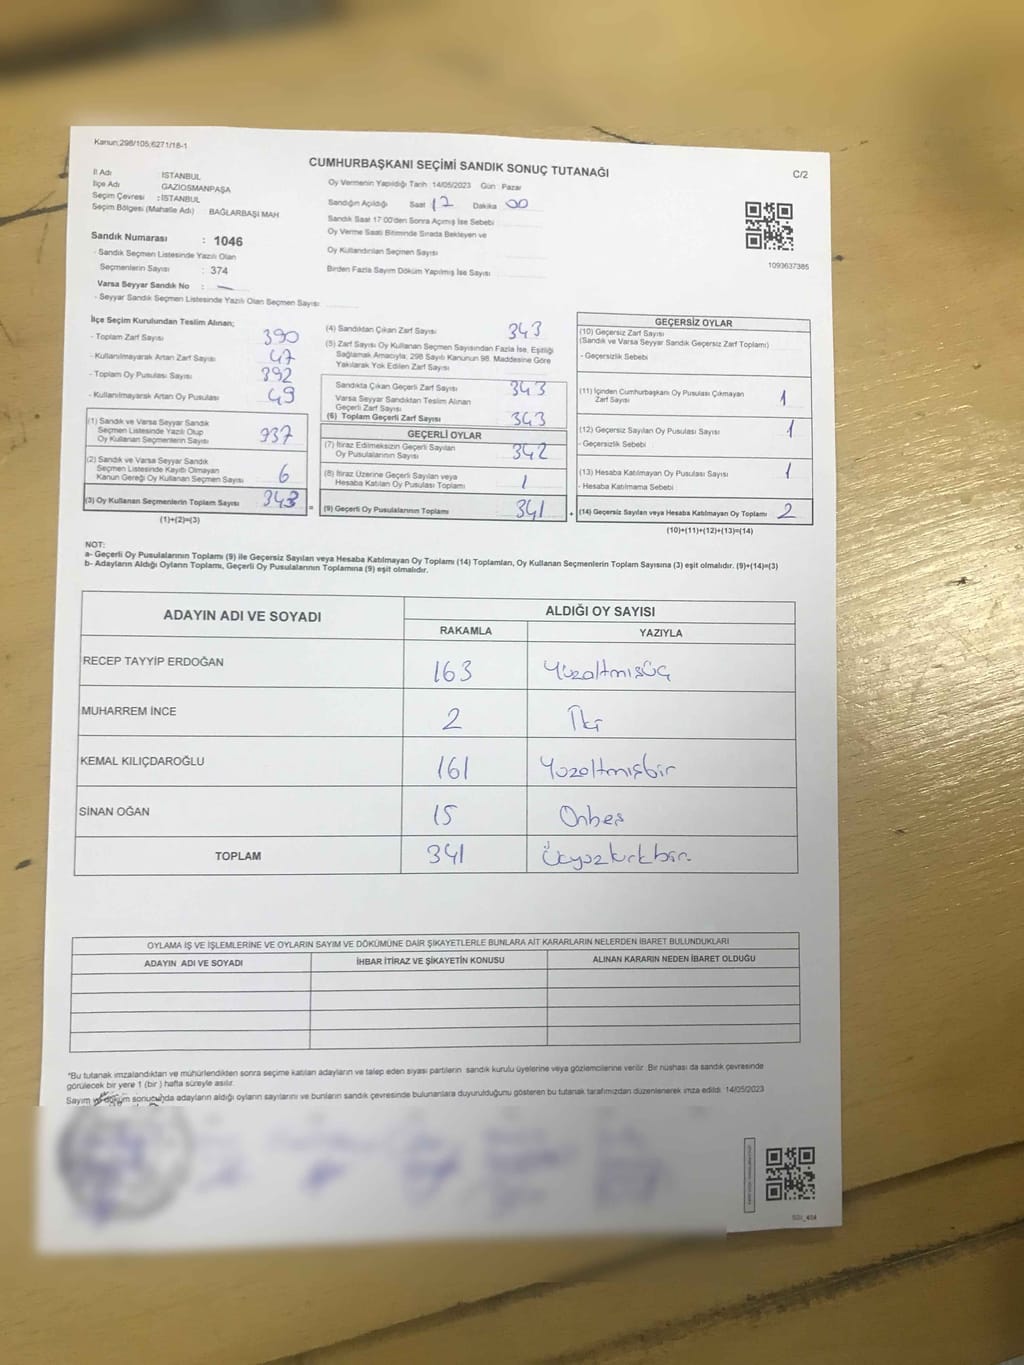 Kanun;298/105;6271/18-1
CUMHURBAŞKANI SEÇİMİ SANDIK SONUÇ TUTANAĞI
C/2
İl Adı : İSTANBUL
İlçe Adı GAZİOSMANPAŞA
Seçim Çevresi : İSTANBUL
Seçim Bölgesi (Mahalle Adı) BAĞLARBAŞI MAH
Oy Vermenin Yapıldığı Tarih :14/05/2023 Gün : Pazar
Sandığın Açıldığı Saat 17 Dakika 00
Sandık Saat 17:00'den Sonra Açılmış İse Sebebi
Oy Verme Saati Bitiminde Sırada Bekleyen ve
Oy Kullandırılan Seçmen Sayısı
Birden Fazla Sayım Döküm Yapılmış İse Sayısı
1093637385
Sandık Numarası : 1046
- Sandık Seçmen Listesinde Yazılı Olan
Seçmenlerin Sayısı : 374
Varsa Seyyar Sandık No : —
- Seyyar Sandık Seçmen Listesinde Yazılı Olan Seçmen Sayısı:
İlçe Seçim Kurulundan Teslim Alınan;
- Toplam Zarf Sayısı 390
- Kullanılmayarak Artan Zarf Sayısı 47
- Toplam Oy Pusulası Sayısı 392
- Kullanılmayarak Artan Oy Pusulası 49
(1) Sandık ve Varsa Seyyar Sandık
Seçmen Listesinde Yazılı Olup
Oy Kullanan Seçmenlerin Sayısı 937
(2) Sandık ve Varsa Seyyar Sandık
Seçmen Listesinde Kayıtlı Olmayan
Kanun Gereği Oy Kullanan Seçmen Sayısı 6
(3) Oy Kullanan Seçmenlerin Toplam Sayısı 343 =
(1)+(2)=(3)
(4) Sandıktan Çıkan Zarf Sayısı 343
(5) Zarf Sayısı Oy Kullanan Seçmen Sayısından Fazla İse, Eşitliği
Sağlamak Amacıyla, 298 Sayılı Kanunun 98. Maddesine Göre
Yakılarak Yok Edilen Zarf Sayısı
Sandıkta Çıkan Geçerli Zarf Sayısı 343
Varsa Seyyar Sandıktan Teslim Alınan
Geçerli Zarf Sayısı
(6) Toplam Geçerli Zarf Sayısı 343
GEÇERLİ OYLAR
(7) İtiraz Edilmeksizin Geçerli Sayılan
Oy Pusulalarının Sayısı 342
(8) İtiraz Üzerine Geçerli Sayılan veya
Hesaba Katılan Oy Pusulası Toplamı 1
(9) Geçerli Oy Pusulalarının Toplamı 341 +
GEÇERSİZ OYLAR
(10) Geçersiz Zarf Sayısı
(Sandık ve Varsa Seyyar Sandık Geçersiz Zarf Toplamı)
- Geçersizlik Sebebi
(11) İçinden Cumhurbaşkanı Oy Pusulası Çıkmayan
Zarf Sayısı 1
(12) Geçersiz Sayılan Oy Pusulası Sayısı 1
- Geçersizlik Sebebi
(13) Hesaba Katılmayan Oy Pusulası Sayısı 1
- Hesaba Katılmama Sebebi
(14) Geçersiz Sayılan veya Hesaba Katılmayan Oy Toplamı 2
(10)+(11)+(12)+(13)=(14)
NOT:
a- Geçerli Oy Pusulalarının Toplamı (9) ile Geçersiz Sayılan veya Hesaba Katılmayan Oy Toplamı (14) Toplamları, Oy Kullanan Seçmenlerin Toplam Sayısına (3) eşit olmalıdır. (9)+(14)=(3)
b- Adayların Aldığı Oyların Toplamı, Geçerli Oy Pusulalarının Toplamına (9) eşit olmalıdır.
ADAYIN ADI VE SOYADI ALDIĞI OY SAYISI
RAKAMLA YAZIYLA
RECEP TAYYİP ERDOĞAN 163 Yüzaltmışüç
MUHARREM İNCE 2 İki
KEMAL KILIÇDAROĞLU 161 Yüzaltmışbir
SİNAN OĞAN 15 Onbeş
TOPLAM 341 Üçyüzkırkbir
OYLAMA İŞ VE İŞLEMLERİNE VE OYLARIN SAYIM VE DÖKÜMÜNE DAİR ŞİKAYETLERLE BUNLARA AİT KARARLARIN NELERDEN İBARET BULUNDUKLARI
ADAYIN ADI VE SOYADI İHBAR İTİRAZ VE ŞİKAYETİN KONUSU ALINAN KARARIN NEDEN İBARET OLDUĞU
*Bu tutanak imzalandıktan ve mühürlendikten sonra seçime katılan adayların ve talep eden siyasi partilerin sandık kurulu üyelerine veya gözlemcilerine verilir. Bir nüshası da sandık çevresinde
görülecek bir yere 1 (bir ) hafta süreyle asılır.
Sayım ve döküm sonucunda adayların aldığı oyların sayılarını ve bunların sandık çevresinde bulunanlara duyurulduğunu gösteren bu tutanak tarafımızdan düzenlenerek imza edildi. 14/05/2023